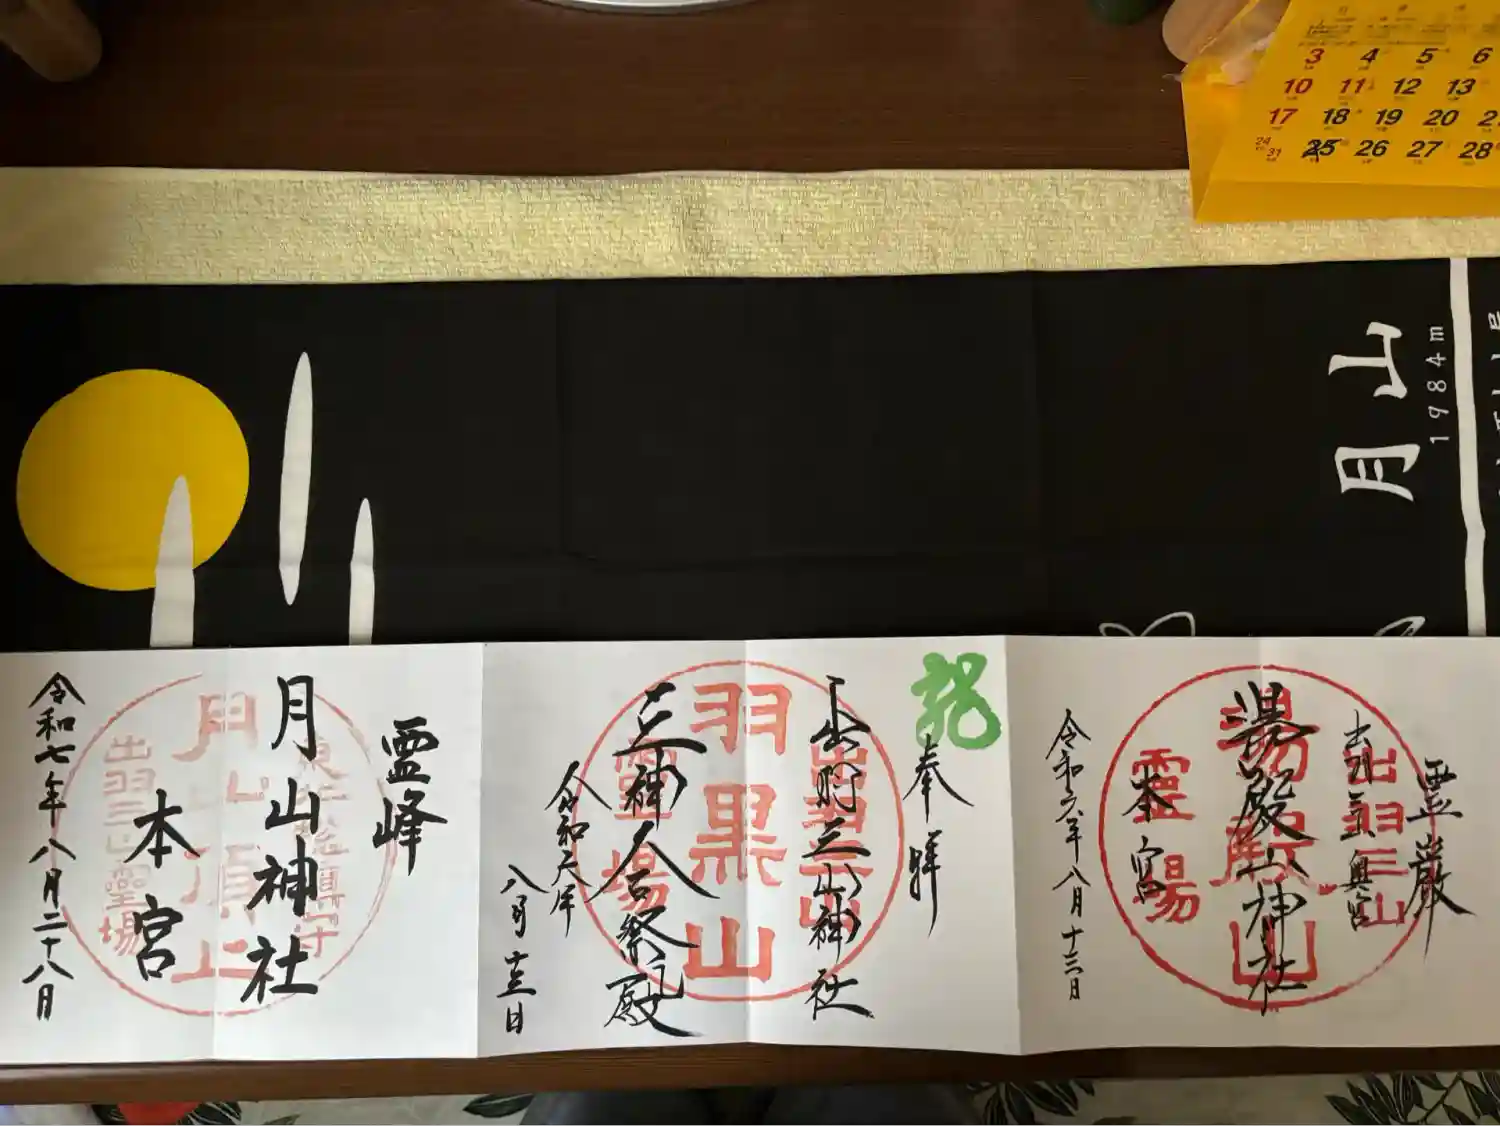 3 4 5 6
10 11 12 13
17 18 19 20
24 31 25 26 27 28
月山
1984m
霊巌
出羽三山
出羽奥宮
湯殿山
湯殿山神社
本宮
霊場
令和六年八月十三日
龍
奉拝
出羽三山神社
出羽三山
羽黒山
三神合祭殿
霊場
令和六年
八月十三日
霊峰
東北総鎮守
月山神社
月山頂上
本宮
出羽三山霊場
令和七年八月二十八月